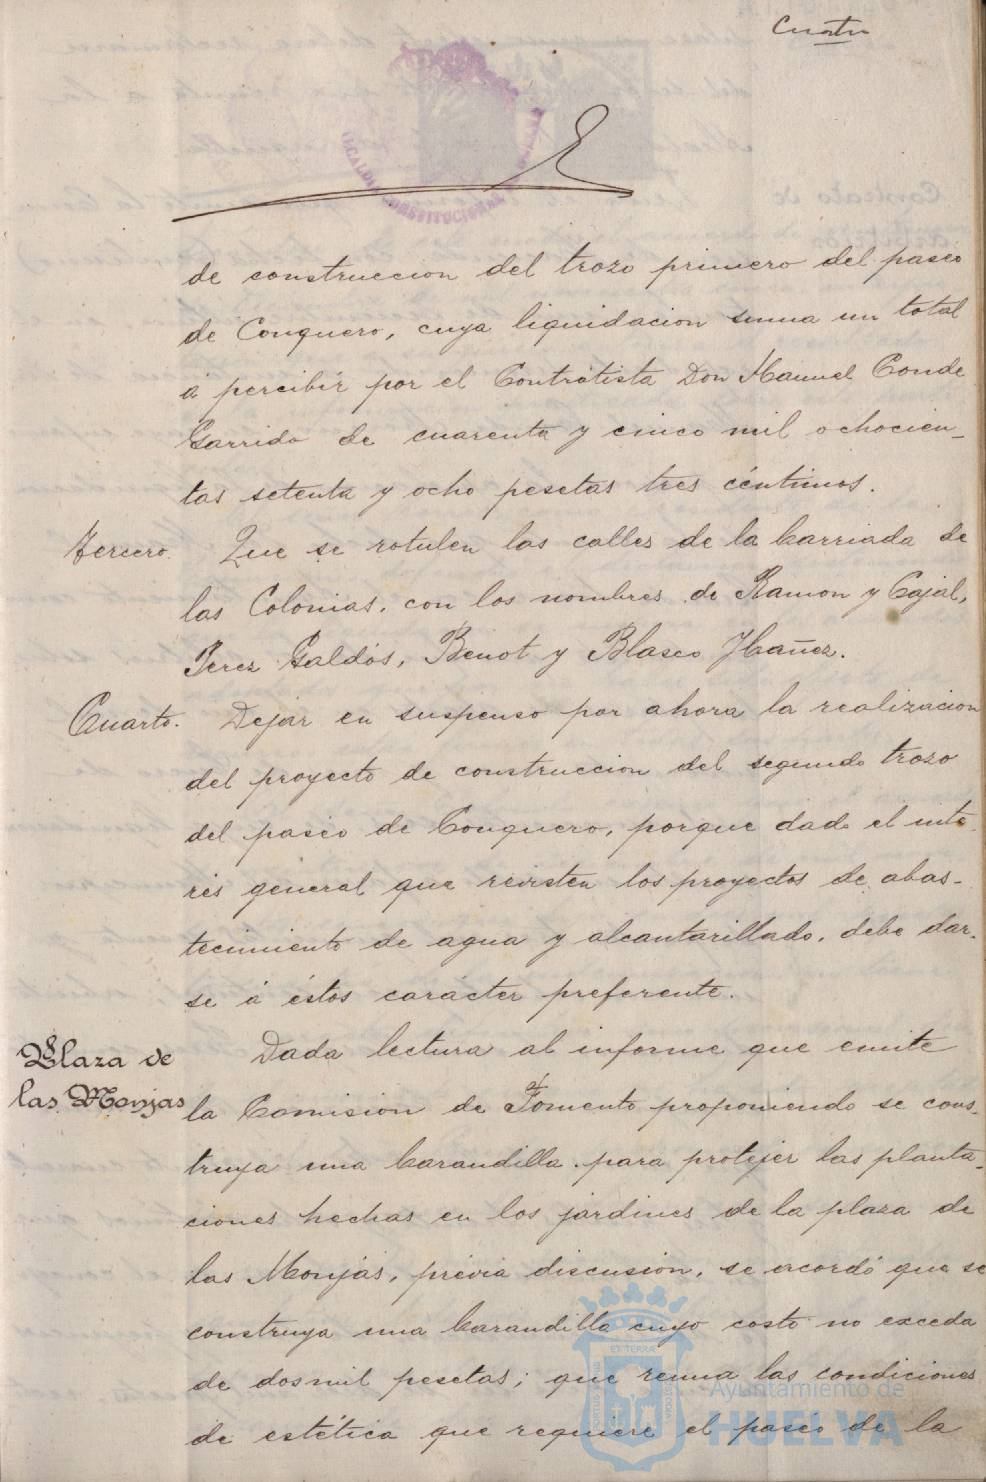 Cuatro
de construccion del trozo primero del paseo
de Conquero, cuya liquidacion suma un total
á percibir por el Contratista Don Manuel Conde
Garrido de cuarenta y cinco mil ochocien-
tas setenta y ocho pesetas tres céntimos.
Tercero. Que se rotulen las calles de la barriada de
las Colonias, con los nombres de Ramon y Cajal,
Perez Galdós, Benot y Blasco Ibañez.
Cuarto. Dejar en suspenso por ahora la realizacion
del proyecto de construccion del segundo trozo
del paseo de Conquero, porque dado el inte-
rés general que revisten los proyectos de abas-
tecimiento de agua y alcantarillado, debe dar-
se á éstos carácter preferente.
Plaza de
las Monjas
Dada lectura al informe que emite
la Comision de Fomento proponiendo se cons-
truya una barandilla para protejer las planta-
ciones hechas en los jardines de la plaza de
las Monjas, previa discusión, se acordó que se
construya una barandilla cuyo costo no exceda
de dos mil pesetas; que reuna las condiciones
de estética que requiere el paseo de la
Ayuntamiento de
HUELVA